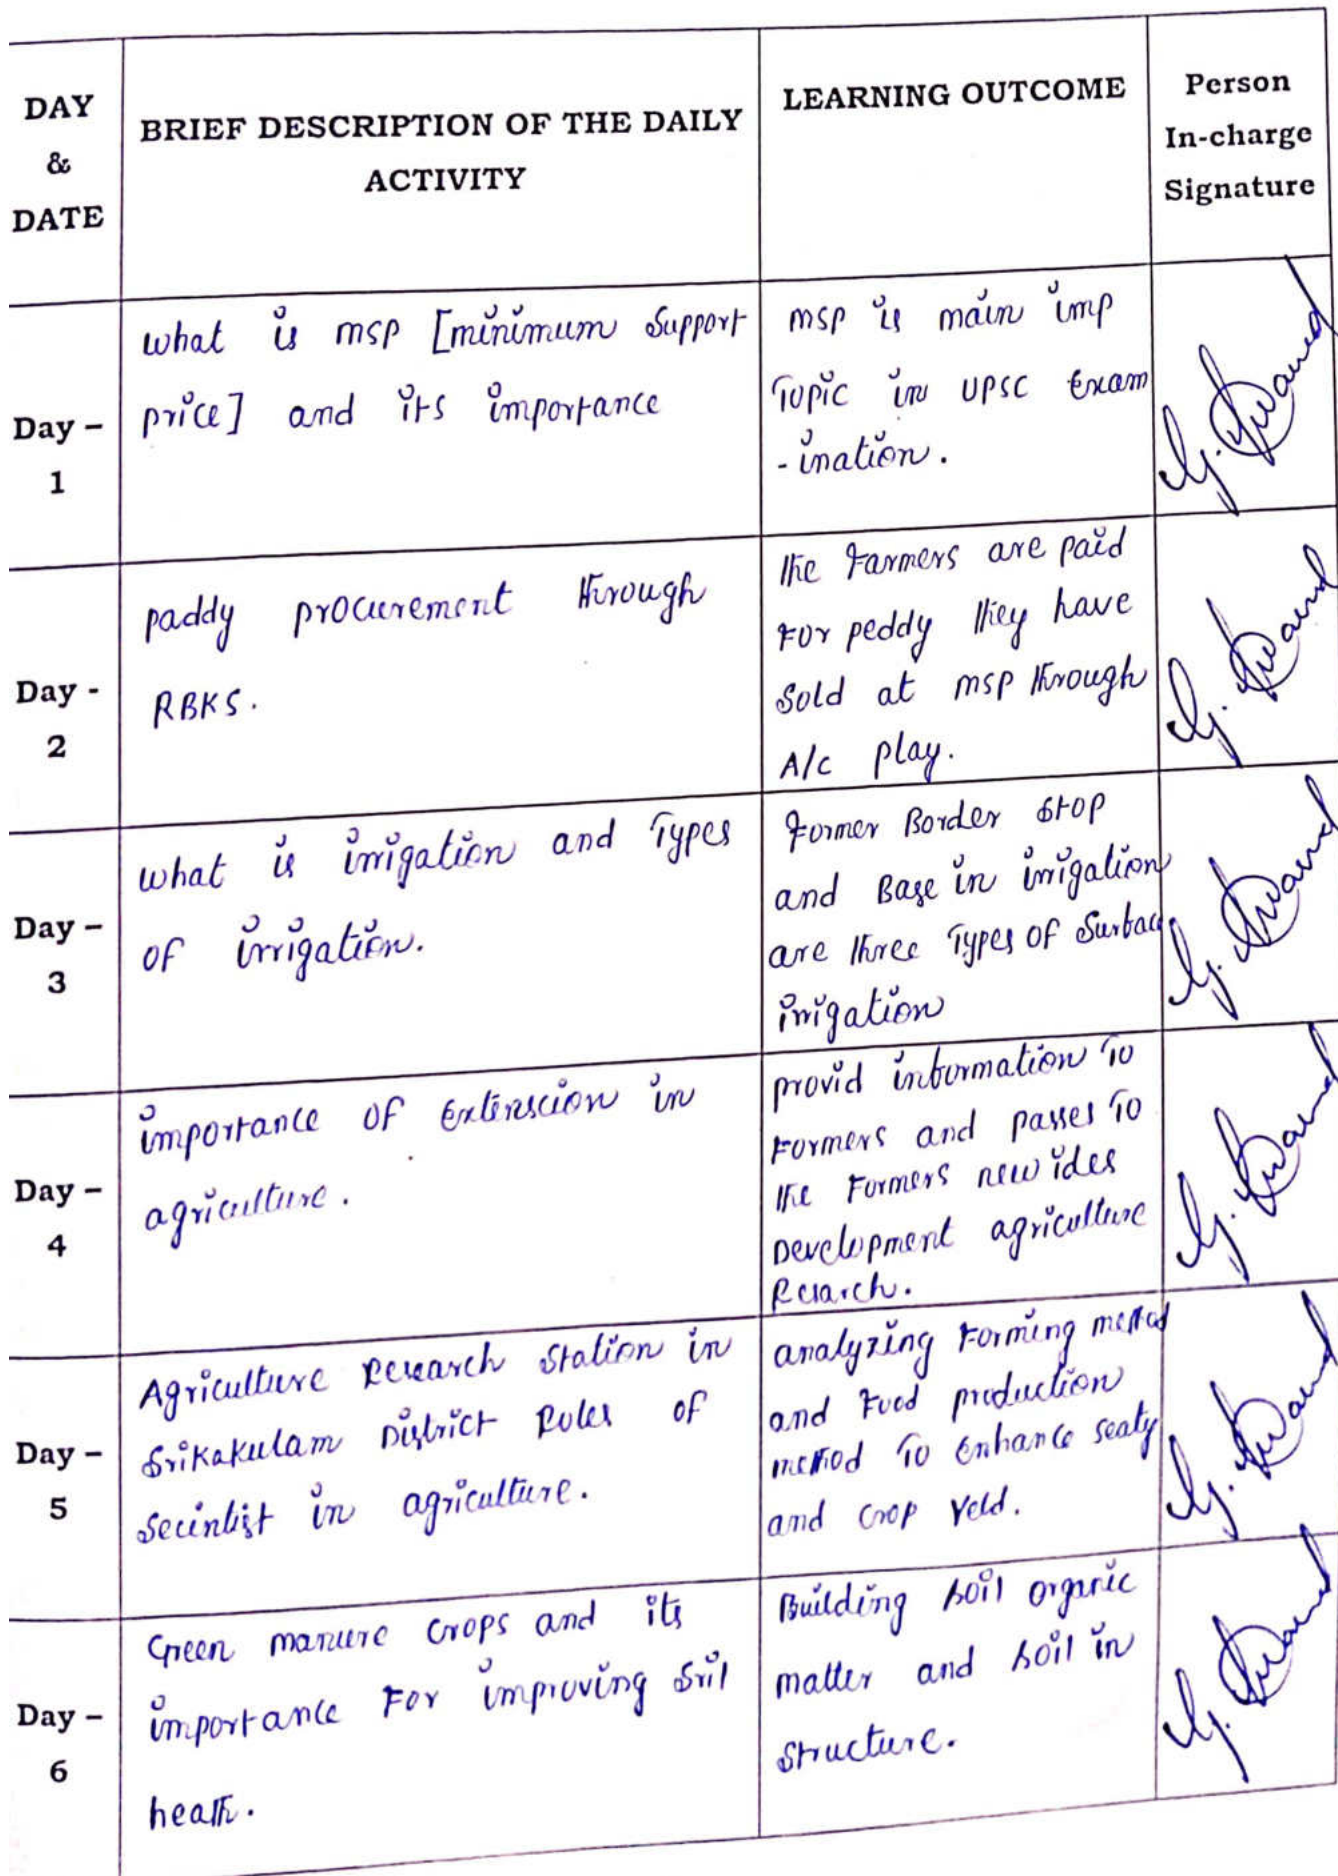 DAY
&
DATE
BRIEF DESCRIPTION OF THE DAILY
ACTIVITY
LEARNING OUTCOME
Person
In-charge
Signature
Day –
1
what is msp [minimum support
price] and its importance
msp is main imp
Topic in UPSC Exam
- ination.
Day -
2
paddy procurement through
RBKS.
The Farmers are paid
For peddy they have
Sold at msp through
A/c play.
Day –
3
what is irrigation and Types
of irrigation.
Former Border Stop
and Base in irrigation
are three Types of Surbace
irrigation
Day –
4
importance of Extenscion in
agriculture.
provid inbormation To
Formers and passes To
the Formers new ides
Development agriculture
Rsarch.
Day –
5
Agriculture Research Station in
Srikakulam District Roles of
Secintist in agriculture.
analyzing Forming method
and Food production
method To Enhance seaty
and crop Yeld.
Day –
6
Green manure crops and its
importance For improving Soil
health.
Building soil organic
matter and soil in
structure.